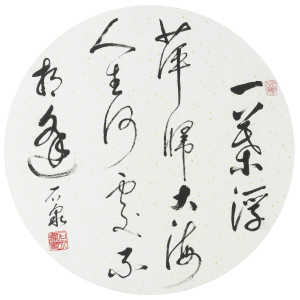 一叶浮
萍归大海
人生何处不
相逢 石泉